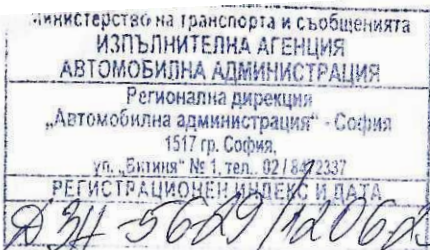 Министерство на транспорта и съобщенията
ИЗПЪЛНИТЕЛНА АГЕНЦИЯ
АВТОМОБИЛНА АДМИНИСТРАЦИЯ
Регионална дирекция
„Автомобилна администрация“ - София
1517 гр. София,
ул. „Витиня“ № 1, тел.. 02 / 8472337
РЕГИСТРАЦИОНЕН ИНДЕКС И ДАТА